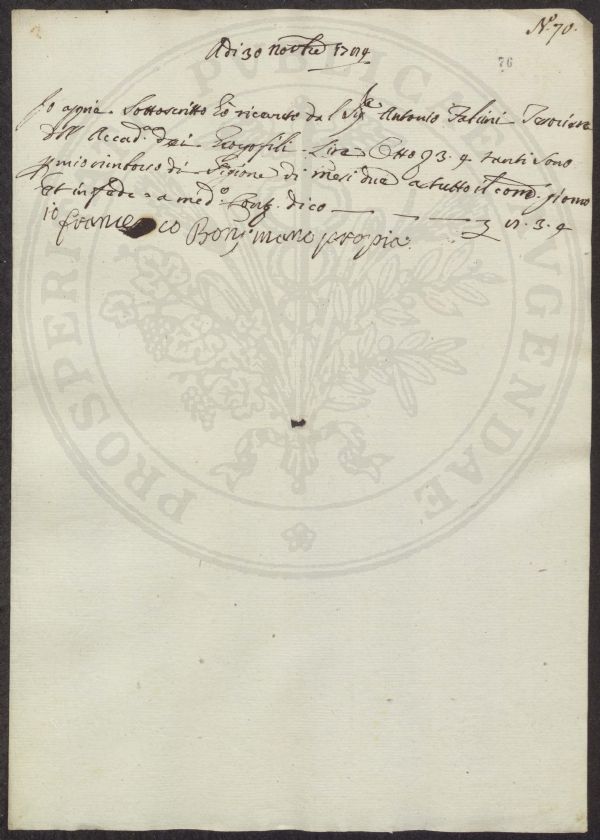 N.° 70.
76
Adi 30 novbre
Io appiè Sottoscritto hò ricevuto dal Sig.re Antonio Falcini Tesoriere
dell Accad.a dei Georgofili Lire Otto 3. 4 tanti sono
p mio rimborso di Pigione di mesi due a tutto il giorno
et in fede a med.o dico
io francesco mano propia
PROSPERITATI PVBLICAE AVGENDAE